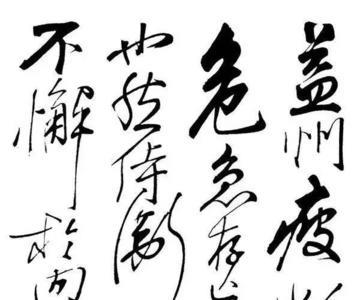 益州疲
危急存
也然侍衛
不懈於内